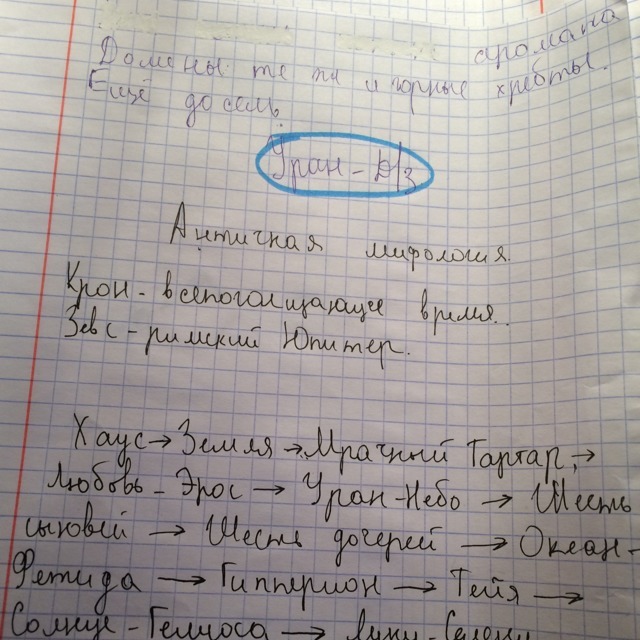 аромата
Домены те же и горные хребты.
Ещё до селъ
Уран - Д/з
Античная мифология
Крон - всепоглощающее время.
Зевс - римский Юпитер.
Хаус → Земля → Мрачный Тартар, →
Любовь - Эрос → Уран-Небо → Шесть
сыновей → Шесть дочерей → Океан -
Фетида → Гипперион → Тейя →
Солнце - Гелиоса → Луну - Селену